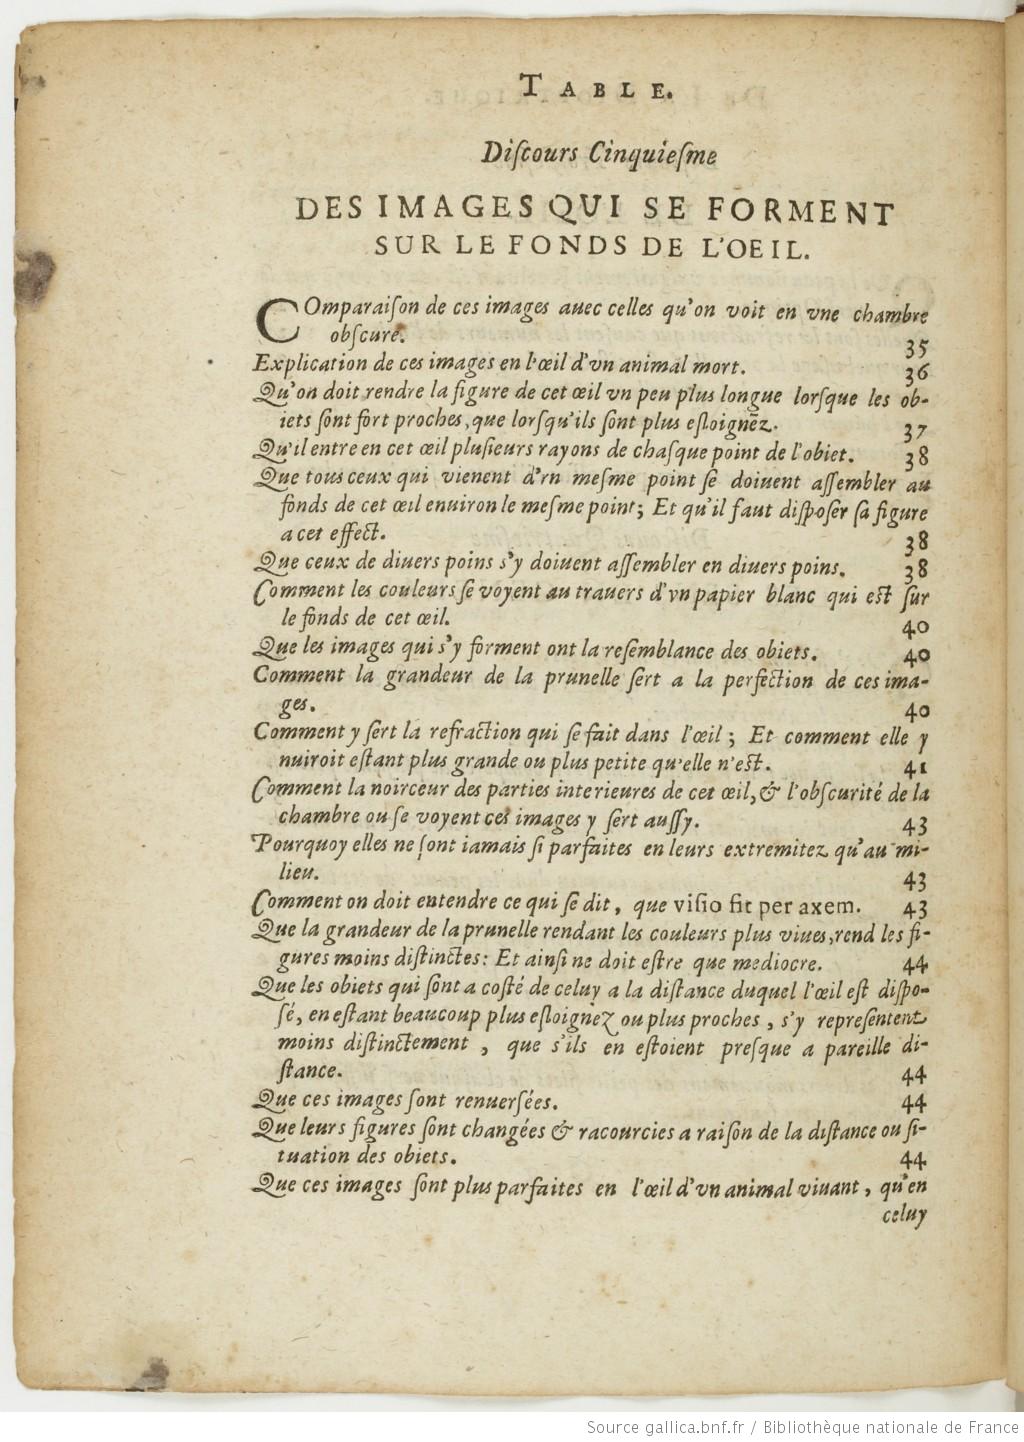 TABLE.
Diſcours Cinquieſme
DES IMAGES QUI SE FORMENT
SUR LE FONDS DE L'OEIL.
COmparaiſon de ces images auec celles qu'on voit en vne chambre
obſcure. 35
Explication de ces images en l'œil d'vn animal mort. 36
Qu'on doit rendre la figure de cet œil vn peu plus longue lorſque les ob-
iets ſont fort proches, que lorſqu'ils ſont plus eſloignēz. 37
Qu'il entre en cet œil pluſieurs rayons de chaſque point de l'obiet. 38
Que tous ceux qui vienent d'rn meſme point ſe doiuent aſſembler au
fonds de cet œil enuiron le meſme point; Et qu'il faut diſpoſer ſa figure
a cet effect. 38
Que ceux de diuers poins s'y doiuent aſſembler en diuers poins. 38
Comment les couleurs ſe voyent au trauers d'vn papier blanc qui eſt ſur
le fonds de cet œil. 40
Que les images qui s'y forment ont la reſemblance des obiets. 40
Comment la grandeur de la prunelle ſert a la perfection de ces ima-
ges. 40
Comment y ſert la refraction qui ſe fait dans l'œil; Et comment elle y
nuiroit eſtant plus grande ou plus petite qu'elle n'eſt. 41
Comment la noirceur des parties interieures de cet œil, & l'obſcurité de la
chambre ou ſe voyent ces images y ſert auſſy. 43
Pourquoy elles ne ſont iamais ſi parfaites en leurs extremitez qu'au mi-
lieu. 43
Comment on doit entendre ce qui ſe dit, que viſio fit per axem. 43
Que la grandeur de la prunelle rendant les couleurs plus viues, rend les fi-
gures moins diſtinctes: Et ainſi ne doit eſtre que mediocre. 44
Que les obiets qui ſont a coſté de celuy a la diſtance duquel l'œil eſt diſpo-
ſé, en eſtant beaucoup plus eſloignez ou plus proches, s'y repreſentent
moins diſtinctement, que s'ils en eſtoient preſque a pareille di-
ſtance. 44
Que ces images ſont renuerſées. 44
Que leurs figures ſont changées & racourcies a raiſon de la diſtance ou ſi-
tuation des obiets. 44
Que ces images ſont plus parfaites en l'œil d'vn animal viuant, qu'en
celuy
Source gallica.bnf.fr / Bibliothèque nationale de France